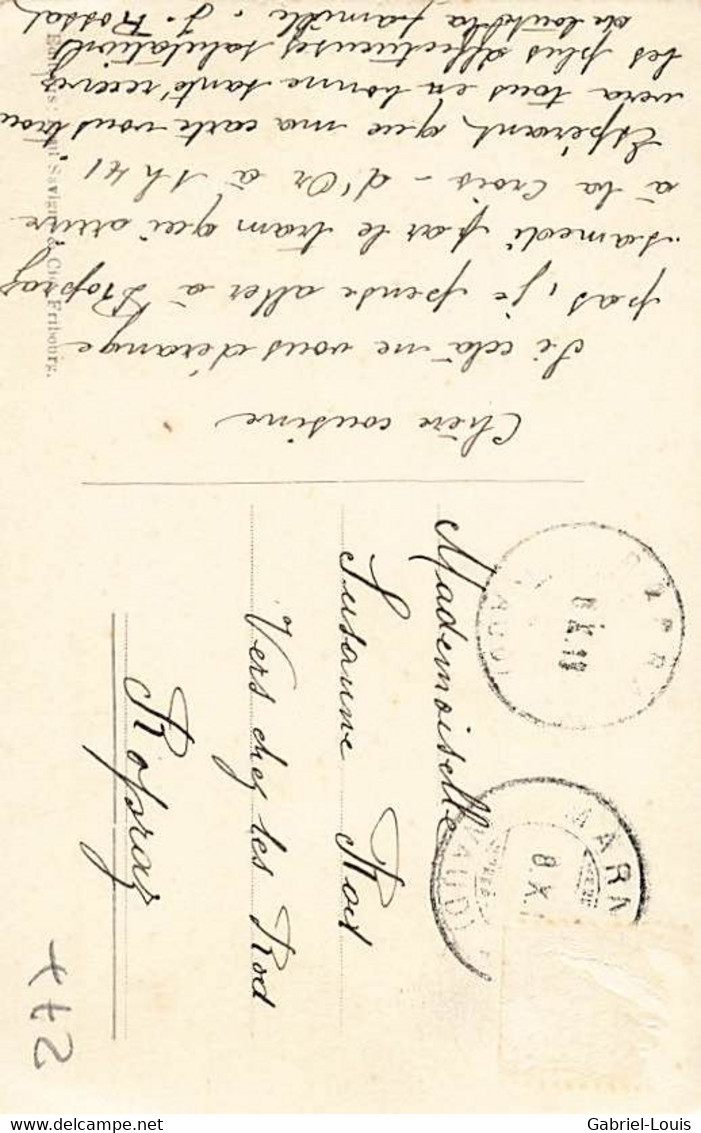 Chère cousine
Si celà ne vous dérange
pas, je pense aller à Ropraz
samedi par le tram qui arrive
à la Croix-d'Or à 1 h 41
Espérant, que ma carte vous trou
vera tous en bonne santé recevez
les plus affectueuses salutations
de toute la famille. J. Rossat
Savigny & Cie, Fribourg.
Mademoiselle
Susanne Rod
Vers chez les Rod
Ropraz
8.X.19
VAUD
MARN
8.X.
(VAUD)
delcampe.net
Gabriel-Louis